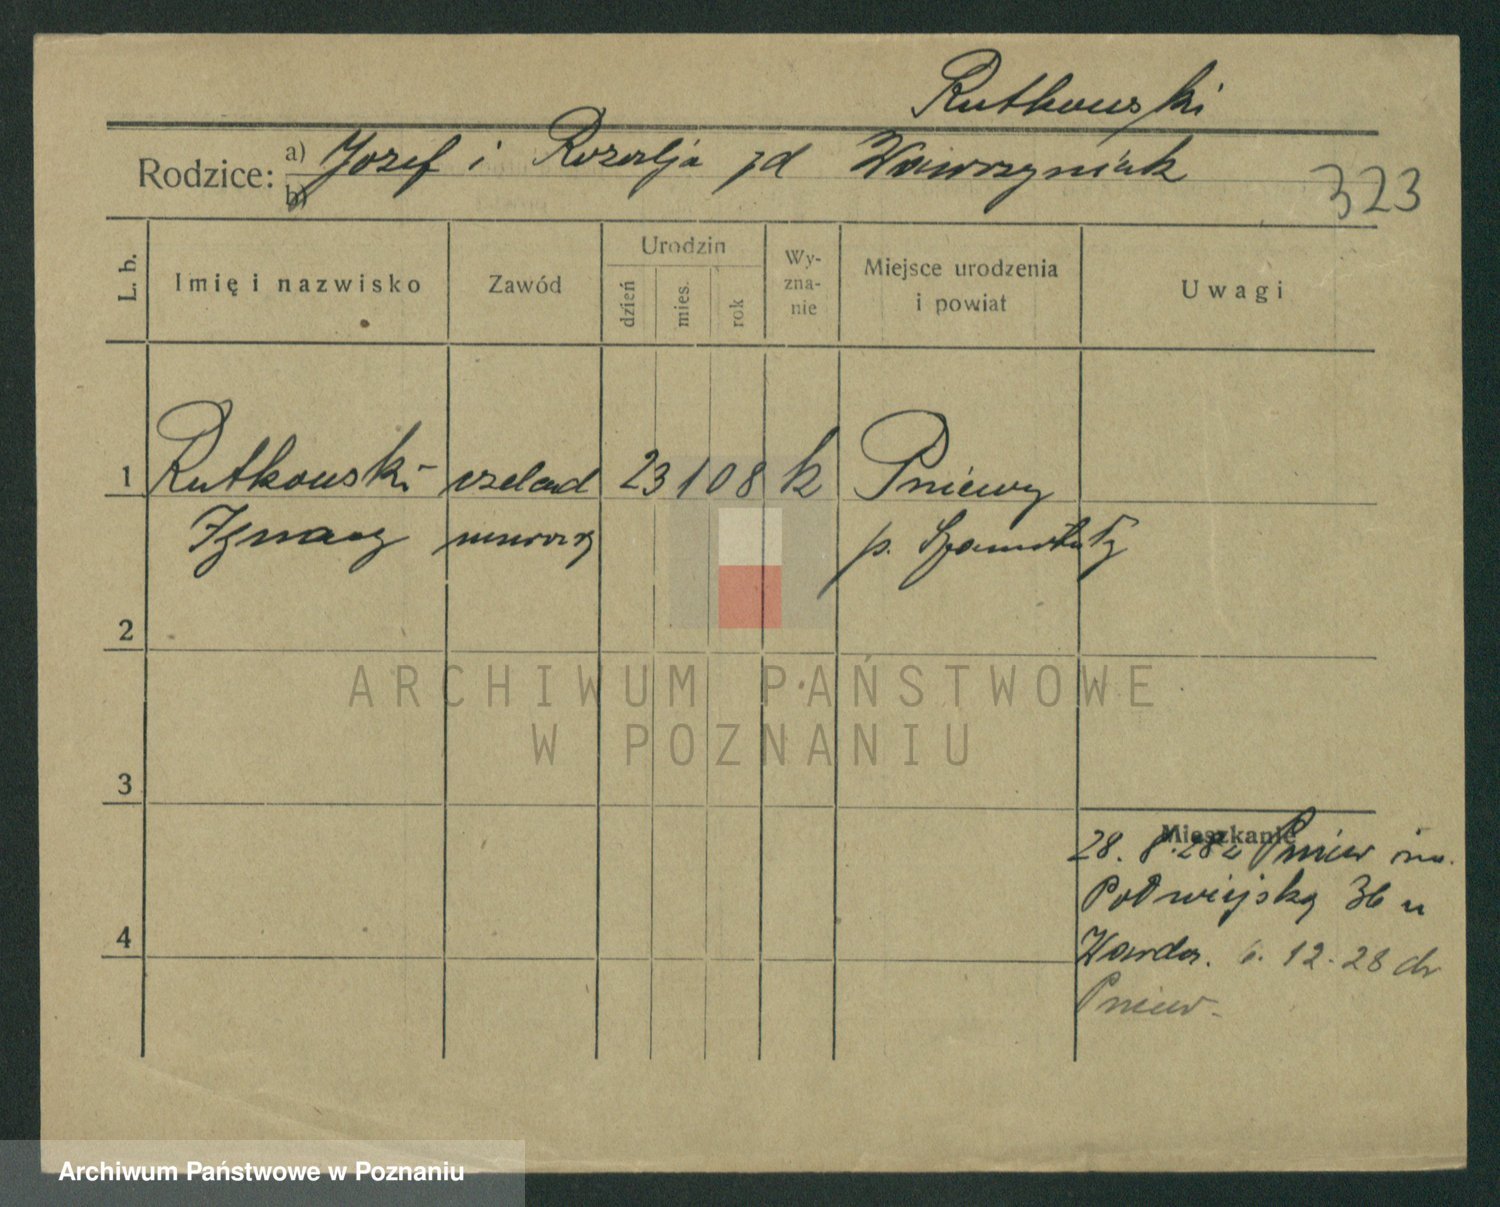 Rutkowski
Rodzice: a) Jozef i Rozalja zd Wawrzyniak
b)
323
L. b. Imię i nazwisko Zawód Urodzin dzień mies. rok Wy-zna-nie Miejsce urodzenia i powiat Uwagi
1 Rutkowski czelad 23 1 08 k Pniewy
Ignacy murarz p. Szamotuły
2
ARCHIWUM PAŃSTWOWE
W POZNANIU
3
Mieszkanie
28. 8. 28 z Pniew
Podwiejską 36 u
4
Warda. 6. 12. 28 do
Pniew
Archiwum Państwowe w Poznaniu